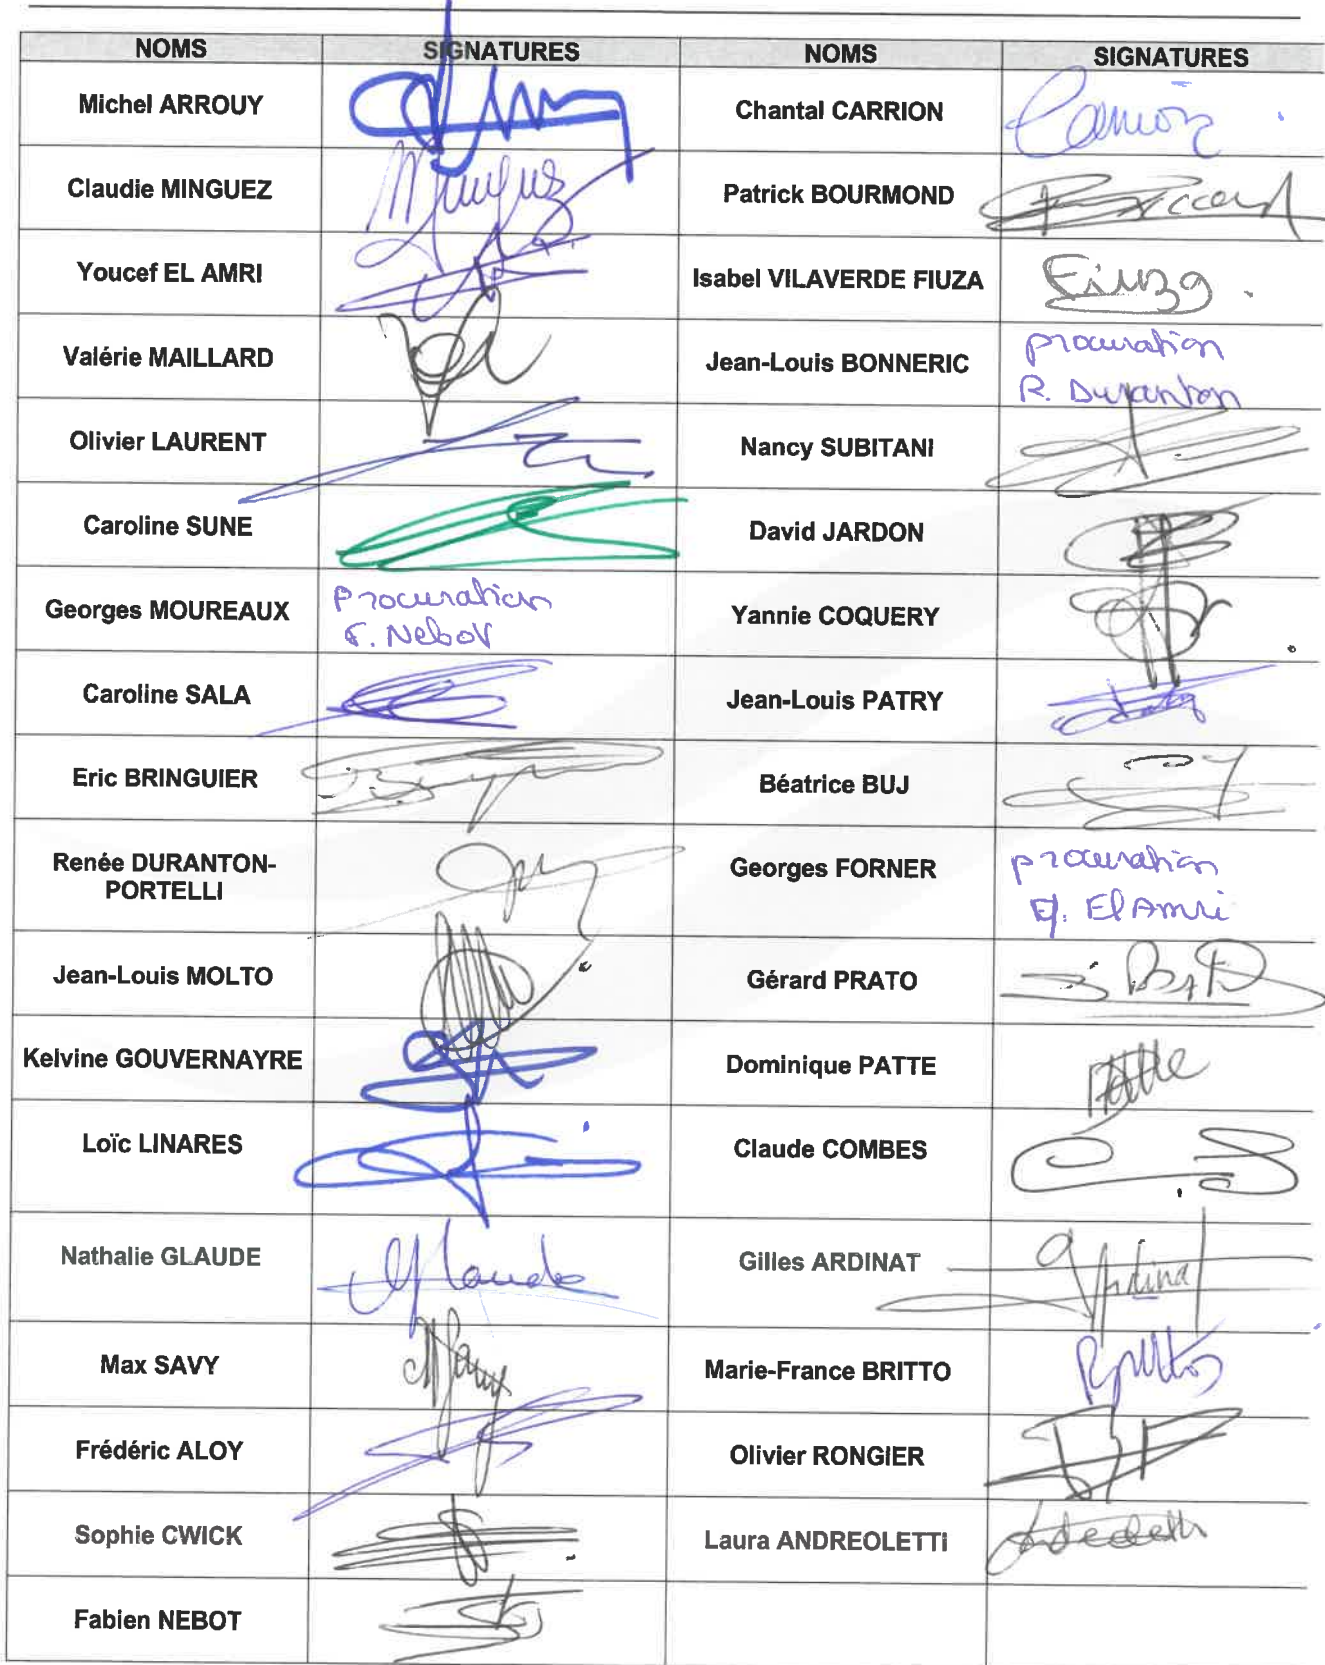 NOMS SIGNATURES NOMS SIGNATURES
Michel ARROUY Chantal CARRION Carrion
Claudie MINGUEZ Minguez Patrick BOURMOND
Youcef EL AMRI Isabel VILAVERDE FIUZA Fiuza
Valérie MAILLARD Jean-Louis BONNERIC procuration
R. Duranton
Olivier LAURENT Nancy SUBITANI
Caroline SUNE David JARDON
Georges MOUREAUX procuration Yannie COQUERY
F. Nebot
Caroline SALA Jean-Louis PATRY
Eric BRINGUIER Béatrice BUJ
Renée DURANTON- Georges FORNER procuration
PORTELLI El Amri
Jean-Louis MOLTO Gérard PRATO
Kelvine GOUVERNAYRE Dominique PATTE Patte
Loïc LINARES Claude COMBES
Nathalie GLAUDE Glaude Gilles ARDINAT Ardinat
Max SAVY Marie-France BRITTO
Frédéric ALOY Olivier RONGIER
Sophie CWICK Laura ANDREOLETTI
Fabien NEBOT